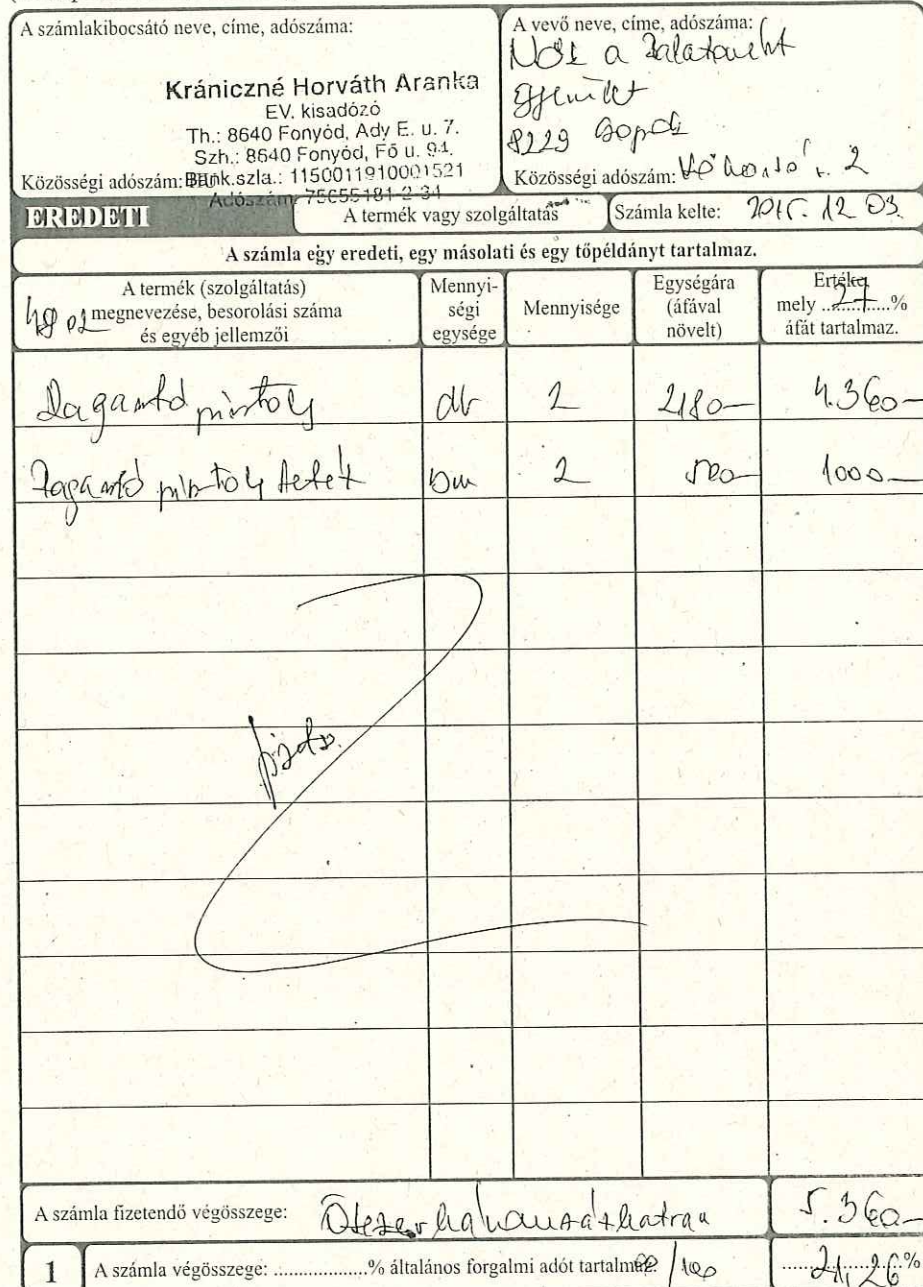 A számlakibocsátó neve, címe, adószáma:
Krániczné Horváth Aranka
EV. kisadózó
Th.: 8640 Fonyód, Ady E. u. 7.
Szh.: 8640 Fonyód, Fő u. 94.
Közösségi adószám: Bank.szla.: 1150011910001521
Adószám: 75655181-2-34
A vevő neve, címe, adószáma:
Nők a Balatonért
Egyesület
8229 Csopak
Közösségi adószám: 2
EREDETI
A termék vagy szolgáltatás
Számla kelte: 2015. 12 03.
A számla egy eredeti, egy másolati és egy tőpéldányt tartalmaz.
A termék (szolgáltatás)
megnevezése, besorolási száma
és egyéb jellemzői
Mennyi-
ségi
egysége
Mennyisége
Egységára
(áfával
növelt)
Értéke,
mely 27 %
áfát tartalmaz.
Ragasztó pisztoly db 2 2180- 4.360-
Ragasztó pisztoly betét 2 500- 1000-
A számla fizetendő végösszege: Ötezer-háromszázhatvan 5.360-
1 A számla végösszege: ..................% általános forgalmi adót tartalmaz. 21,26%